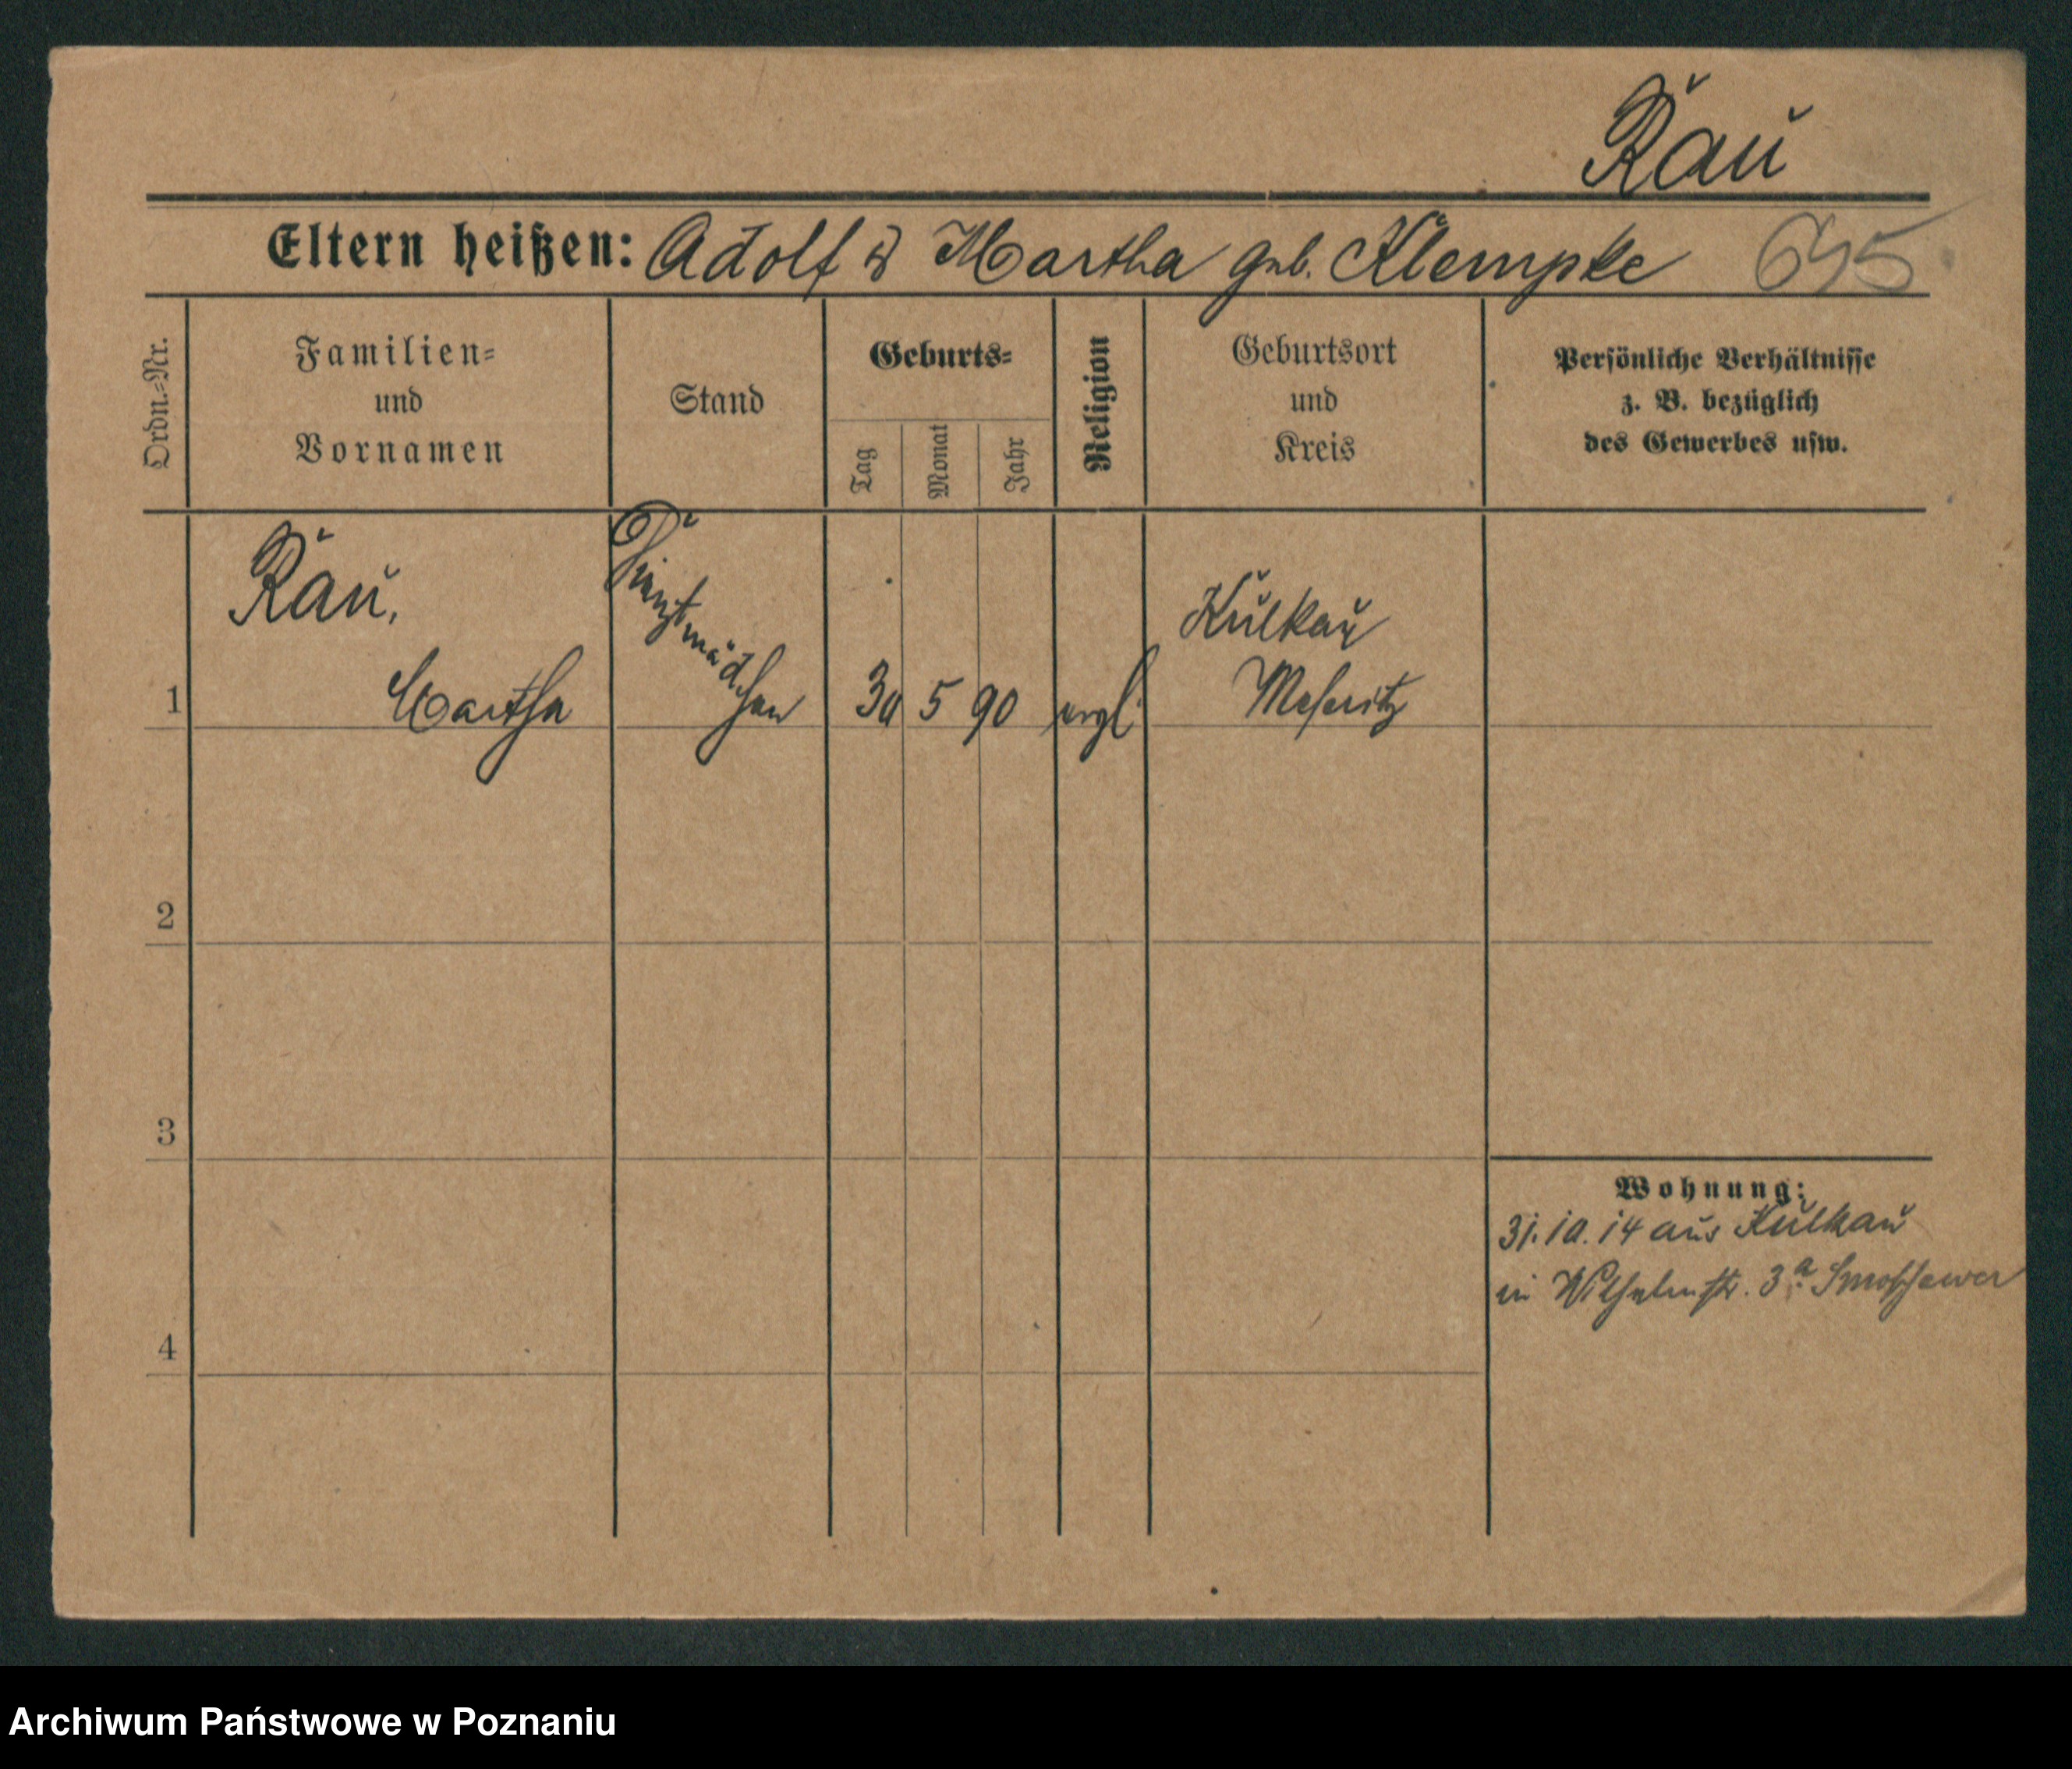 Rau
Eltern heißen: Adolf & Martha geb. Klempke 695
Ordn.-Nr.
Familien-
und
Vornamen
Stand
Geburts-
Tag
Monat
Jahr
Religion
Geburtsort
und
Kreis
Persönliche Verhältnisse
z. B. bezüglich
des Gewerbes usw.
1
Rau,
Martha
Dienst
mädchen
30 5 90
evgl.
Kulkau
Meseritz
2
3
4
Wohnung:
31.10.14 aus Kulkau
in Wilhelmstr. 3a
Archiwum Państwowe w Poznaniu